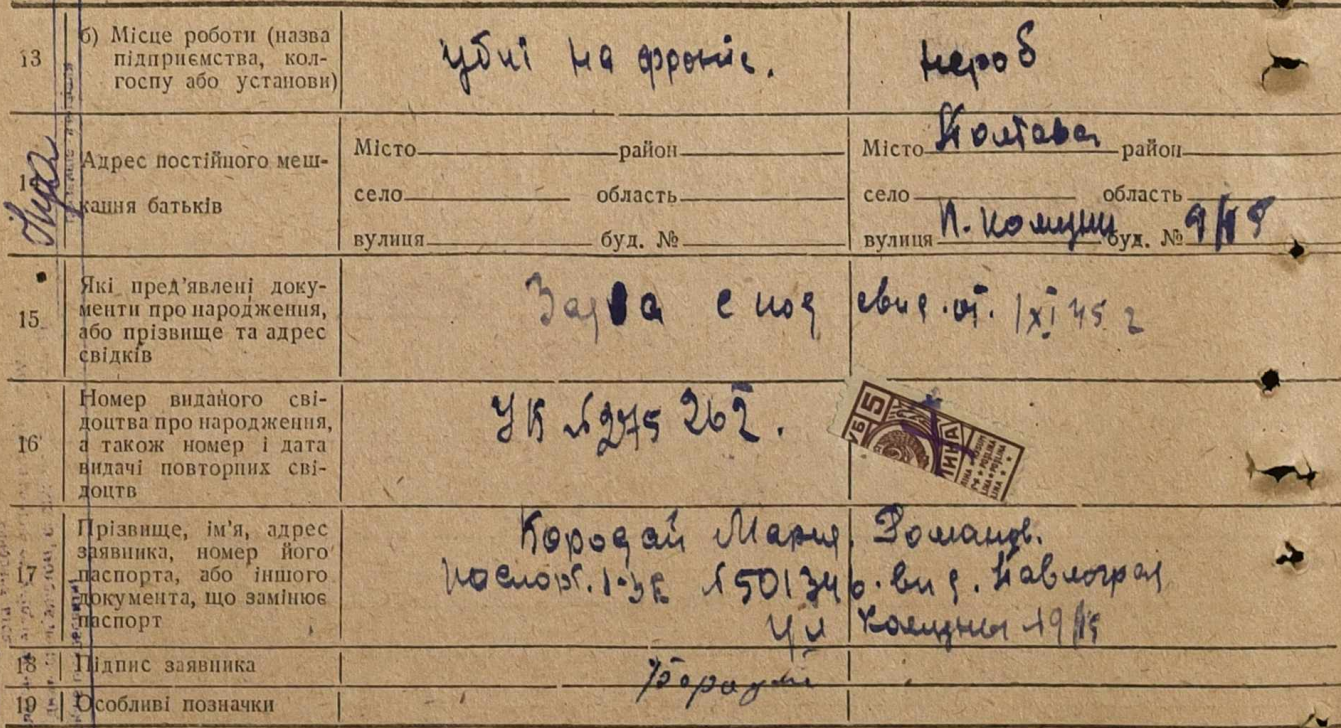 13 б) Місце роботи (назва підприємства, колгоспу або установи)
убиі на фроніс. нероб
Адрес постійного мешкання батьків
Місто район Місто Полтава район
село область село область
вулиця буд. № вулиця П. Комуни буд. № 9/15
15 Які пред’явлені документи про народження, або прізвище та адрес свідків
с под свид. от. 1 XI 45 г
16 Номер виданого свідоцтва про народження, а також номер і дата видачі повторних свідоцтв
УК № 275 262.
5
17 Прізвище, ім’я, адрес заявника, номер його паспорта, або іншого документа, що замінює паспорт
Кородай Мария Романов.
паспорт. № 501346 вид. Павлоград
ул Комуны 19/15
18 Підпис заявника
19 Особливі позначки